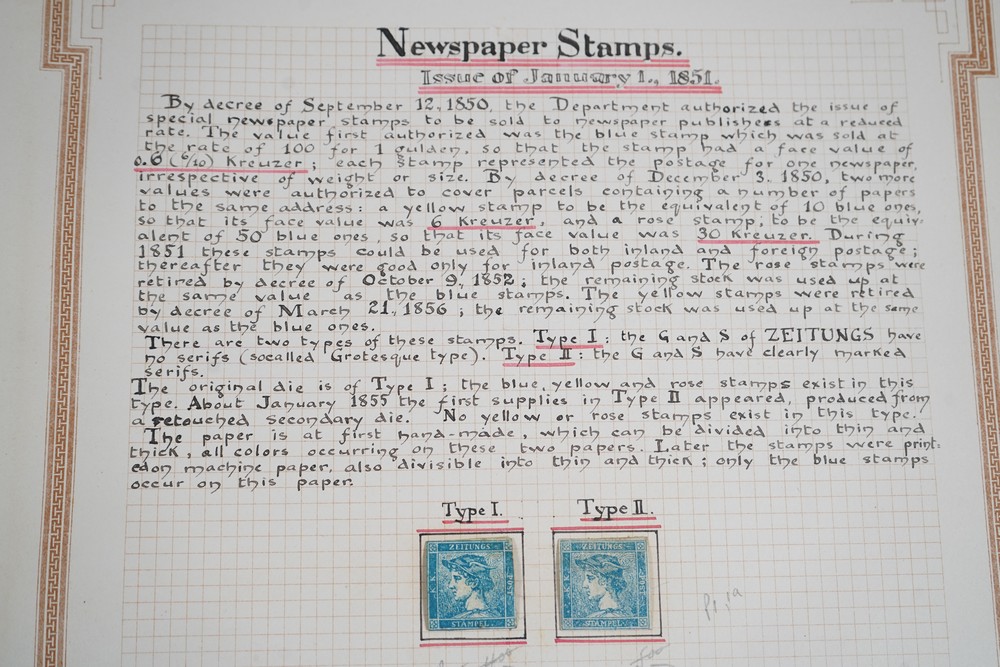 Newspaper Stamps.
Issue of January 1., 1851.
By decree of September 12, 1850, the Department authorized the issue of
special newspaper stamps to be sold to newspaper publishers at a reduced
rate. The value first authorized was the blue stamp which was sold at
the rate of 100 for 1 gulden, so that the stamp had a face value of
0.6 (6/10) Kreuzer; each stamp represented the postage for one newspaper,
irrespective of weight or size. By decree of December 3. 1850, two more
values were authorized to cover parcels containing a number of papers
to the same address: a yellow stamp to be the equivalent of 10 blue ones,
so that its face value was 6 Kreuzer, and a rose stamp, to be the equiv-
alent of 50 blue ones, so that its face value was 30 Kreuzer. During
1851 these stamps could be used for both inland and foreign postage;
thereafter they were good only for inland postage. The rose stamps were
retired by decree of October 9, 1852; the remaining stock was used up at
the same value as the blue stamps. The yellow stamps were retired
by decree of March 21, 1856; the remaining stock was used up at the same
value as the blue ones.
There are two types of these stamps. Type I: the G and S of ZEITUNGS have
no serifs (socalled Grotesque type). Type II: the G and S have clearly marked
serifs.
The original die is of Type I; the blue, yellow and rose stamps exist in this
type. About January 1855 the first supplies in Type II appeared, produced from
a retouched secondary die. No yellow or rose stamps exist in this type.
The paper is at first hand-made, which can be divided into thin and
thick, all colors occurring on these two papers. Later the stamps were print=
ed on machine paper, also divisible into thin and thick; only the blue stamps
occur on this paper.
Type I. Type II.
ZEITUNGS ZEITUNGS
STAMPEL STAMPEL